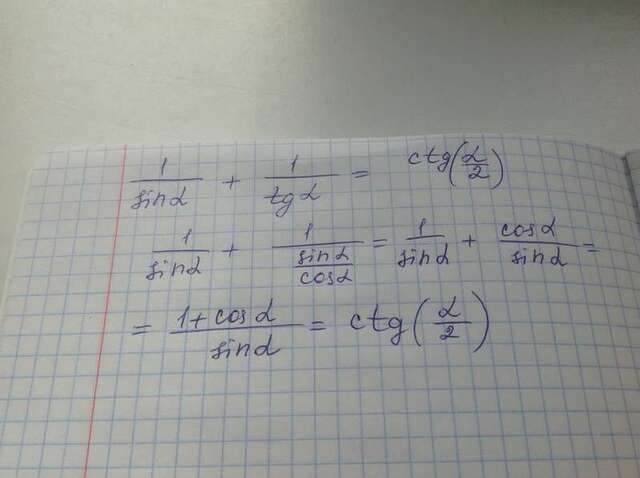 1/sinα + 1/tgα = ctg(α/2)
1/sinα + 1/(sinα/cosα) = 1/sinα + cosα/sinα =
= (1+cosα)/sinα = ctg(α/2)